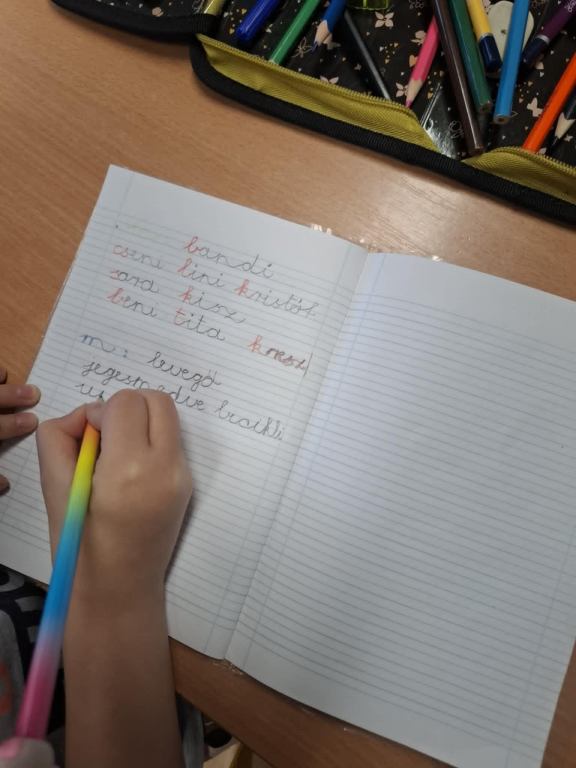 bandi
cseni lini kristóf
sára kisz
beni tita kresz
m: levegő
jegesmedve bcikli